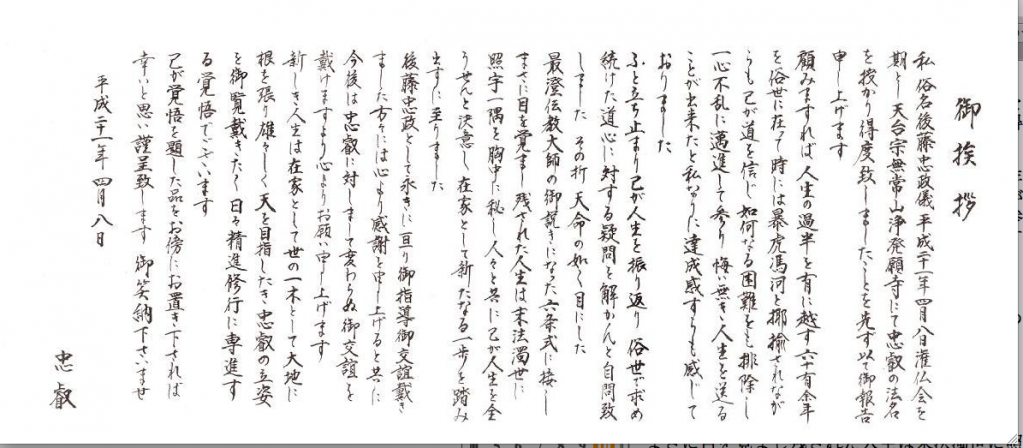 御挨拶
私 俗名後藤忠政儀 平成二十一年四月八日潅仏会を
期とし 天台宗無常山浄発願寺にて忠叡の法名
を授かり得度致しましたことを先ず以て御報告
申し上げます
顧みますれば 人生の過半を有に越す六十有余年
を俗世に在って時には暴虎馮河と揶揄されなが
らも 己が道を信じ 如何なる困難をも排除し
一心不乱に邁進して参り 悔い無き人生を送る
ことが出来たと私なりに達成感すらも感じて
おりました
ふと立ち止まり己が人生を振り返り 俗世で求め
続けた道心に対する疑問を解かんと自問致
しました その折 天命の如く目にした
最澄伝教大師の御説きになった六条式に接し
まさに目を覚まし 残された人生は末法濁世に
照宇一隅を胸中に秘し 人々と共に己が人生を全
うせんと決意し 在家として新たなる一歩を踏み
出すに至りました
後藤忠政として永きに亘り御指導御交誼戴き
ました方々には心より感謝を申し上げると共に
今後は忠叡に対しまして変わらぬ御交誼を
戴けますよう心よりお願い申し上げます
新しき人生は在家として世の一木として大地に
根を張り雄々しく天を目指したき忠叡の立姿
を御覧戴きたく日々精進修行に専進す
る覚悟でございます
己が覚悟を題した品をお傍にお置き下されば
幸いと思い謹呈致します 御笑納下さいませ
平成二十一年 四月 八日
忠叡